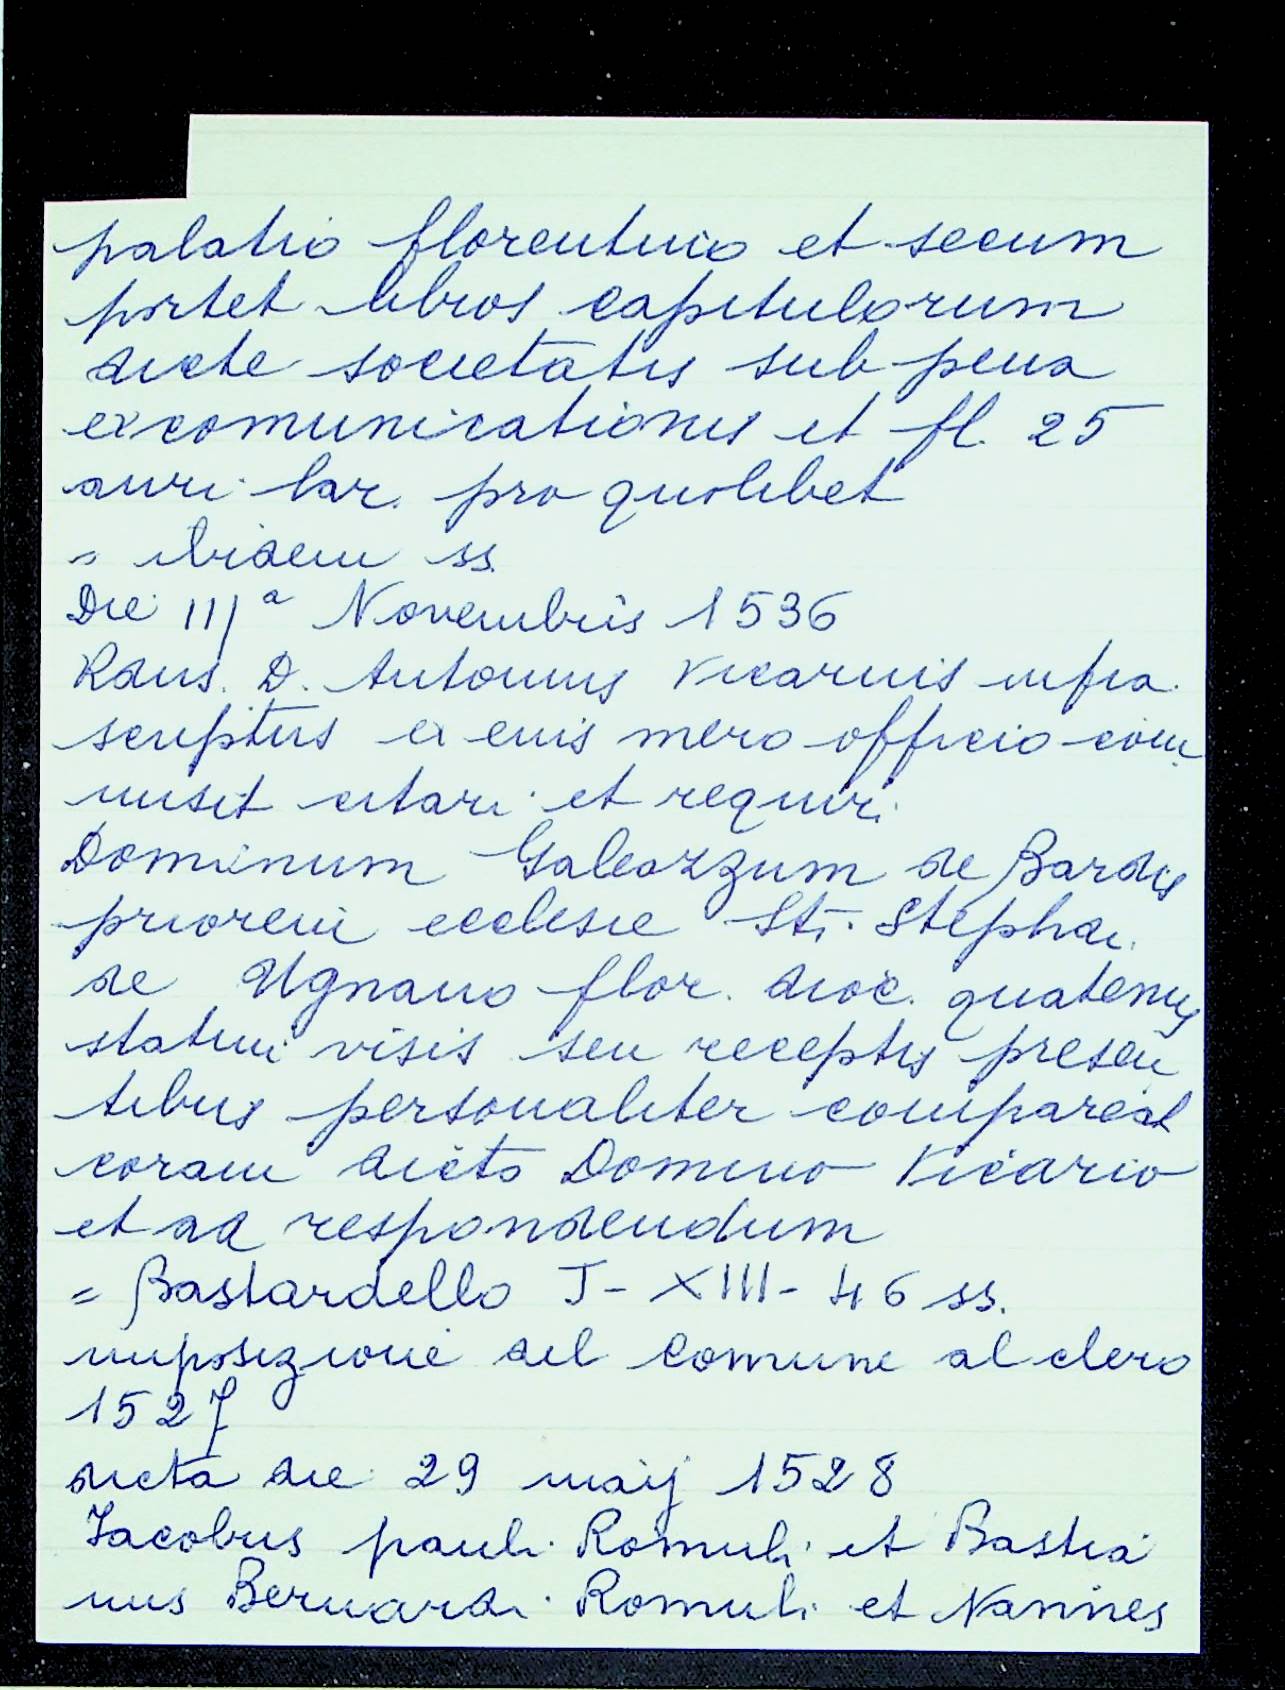 palatio florentino et secum
portet libros capitulorum
dicte societatis sub pena
excomunicationis et fl. 25
auri lar. pro quolibet
= ibidem ss.
Die IIIa Novembris 1536
Rdus. D. Antonius Vicarius infra
scriptus ex eius mero officio com
misit citari et requiri
Dominum Galeazzum de Bardis
priorem ecclesie Sti. Stephani
de Ugnano flor. dioc. quatenus
statim visis seu receptis presen
tibus personaliter compareat
coram dicto Domino Vicario
et ad respondendum
= Bastardello J - XIII - 46 ss.
imposizione del Comune al clero
1527
dicta die 29 maij 1528
Jacobus pauli Romuli et Bastia
nus Bernardi Romuli et Nannes